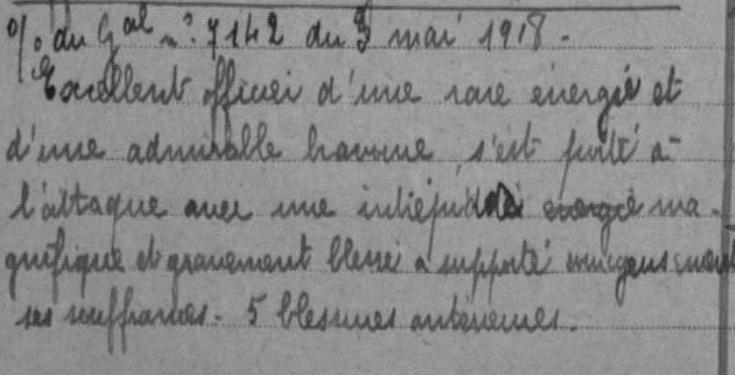 % du Gal n° 7142 du 3 mai 1918 -
Excellent officier d'une rare énergie et
d'une admirable bravoure, s'est porté à
l'attaque avec une intrépidité ma-
gnifique et gravement blessé a supporté courageusement
ses souffrances - 5 blessures antérieures.